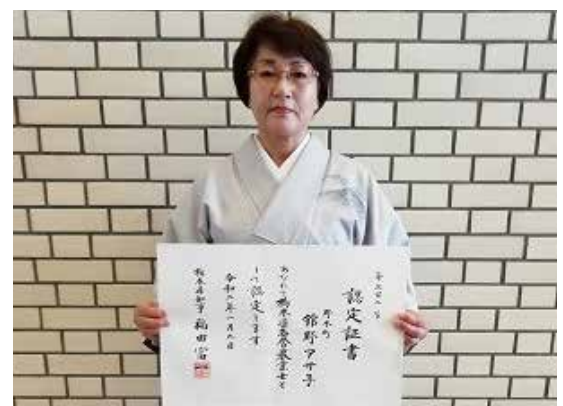 認定証書
野木町
舘野アサ子
あなたを栃木県名誉農業士と
して認定します
令和二年一月九日
栃木県知事 福田富一